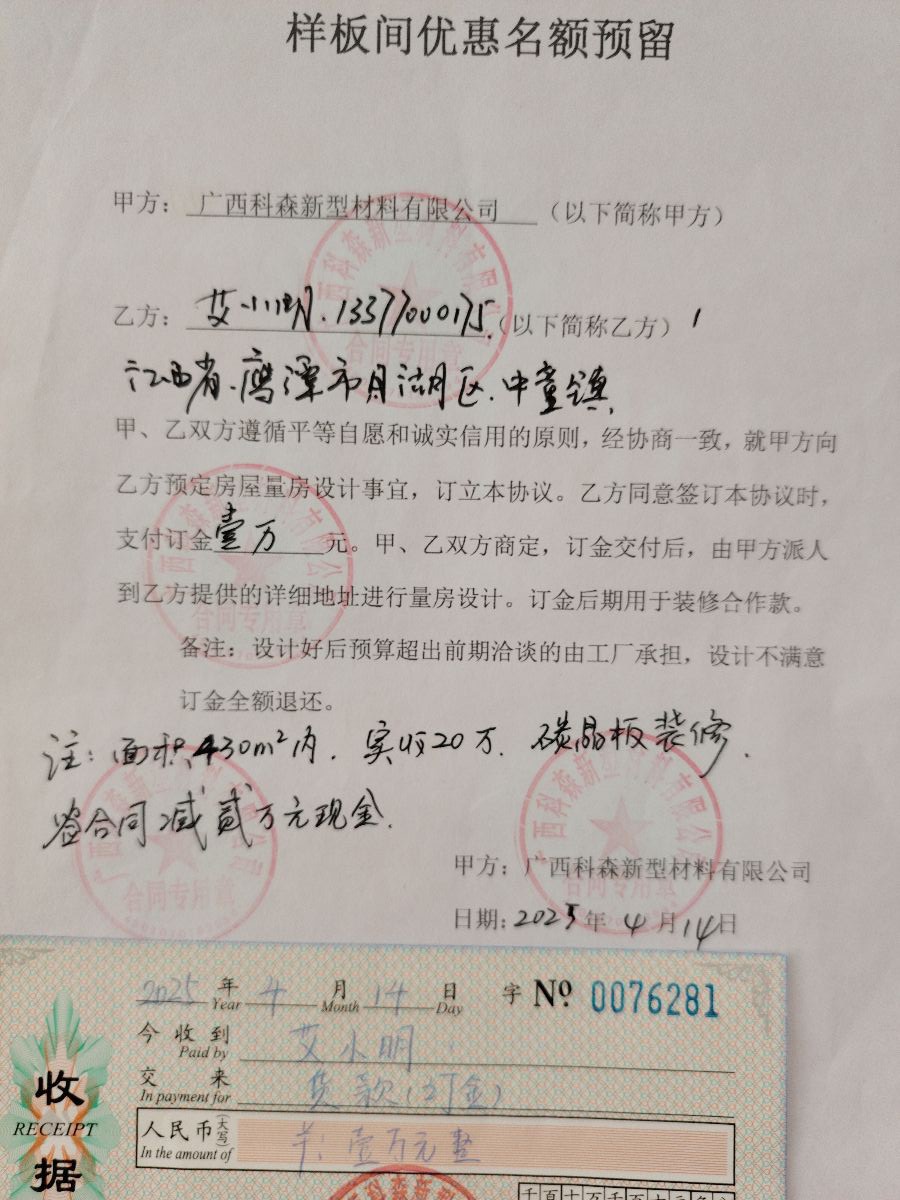 样板间优惠名额预留
甲方：广西科森新型材料有限公司（以下简称甲方）
乙方：艾小明.13377000175.（以下简称乙方）
江西省.鹰潭市月湖区.中童镇
甲、乙双方遵循平等自愿和诚实信用的原则，经协商一致，就甲方向
乙方预定房屋量房设计事宜，订立本协议。乙方同意签订本协议时，
支付订金壹万元。甲、乙双方商定，订金交付后，由甲方派人
到乙方提供的详细地址进行量房设计。订金后期用于装修合作款。
备注：设计好后预算超出前期洽谈的由工厂承担，设计不满意
订金全额退还。
注：面积430m²内.实收20万.碳晶板装修.
签合同减贰万元现金.
甲方：广西科森新型材料有限公司
日期：2025年4月14日
广西科森新型材料有限公司
合同专用章
2025年4月14日 字 Nº 0076281
Year Month Day
今收到 艾小明
Paid by
交来 货款(订金)
In payment for
人民币(大写) 羊:壹万元整
In the amount of
收
RECEIPT
据
千百十万千百十元角分